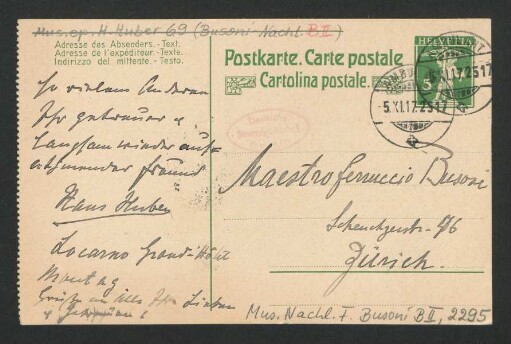 Mus.ep. H. Huber 69 (Busoni Nachl. B II)
Adresse des Absenders.-Text.
Adresse de l'expéditeur.-Texte.
Indirizzo del mittente.-Testo.
Postkarte. Carte postale
Cartolina postale.
HELVETIA
5
5.XI.17.25 17
5.XI.17.25 17
so vielem Anderen
Ihr getreuer u
langsam wieder auf-
atmender Freund
Hans Huber
Locarno Grand-Hôtel
Montag
Grüße an alle Ihre Lieben
Maestro Ferruccio Busoni
Scheuchzerstr. 36
Zürich.
Mus. Nachl. F. Busoni B II, 2295